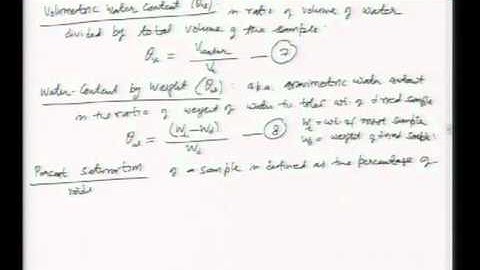 Volumetric Water Content (θv): is ratio of volume of water
divided by total volume of the sample.
θv = Vwater / Vt — (7)
Water-Content by Weight (θw): a.k.a. gravimetric water content
is the ratio of weight of water to total wt. of dried sample
θw = (Wt - Wd) / Wd — (8)
Wt = wt of moist sample
Wd = weight of dried sample
Percent Saturation of a sample is defined as the percentage of
voids